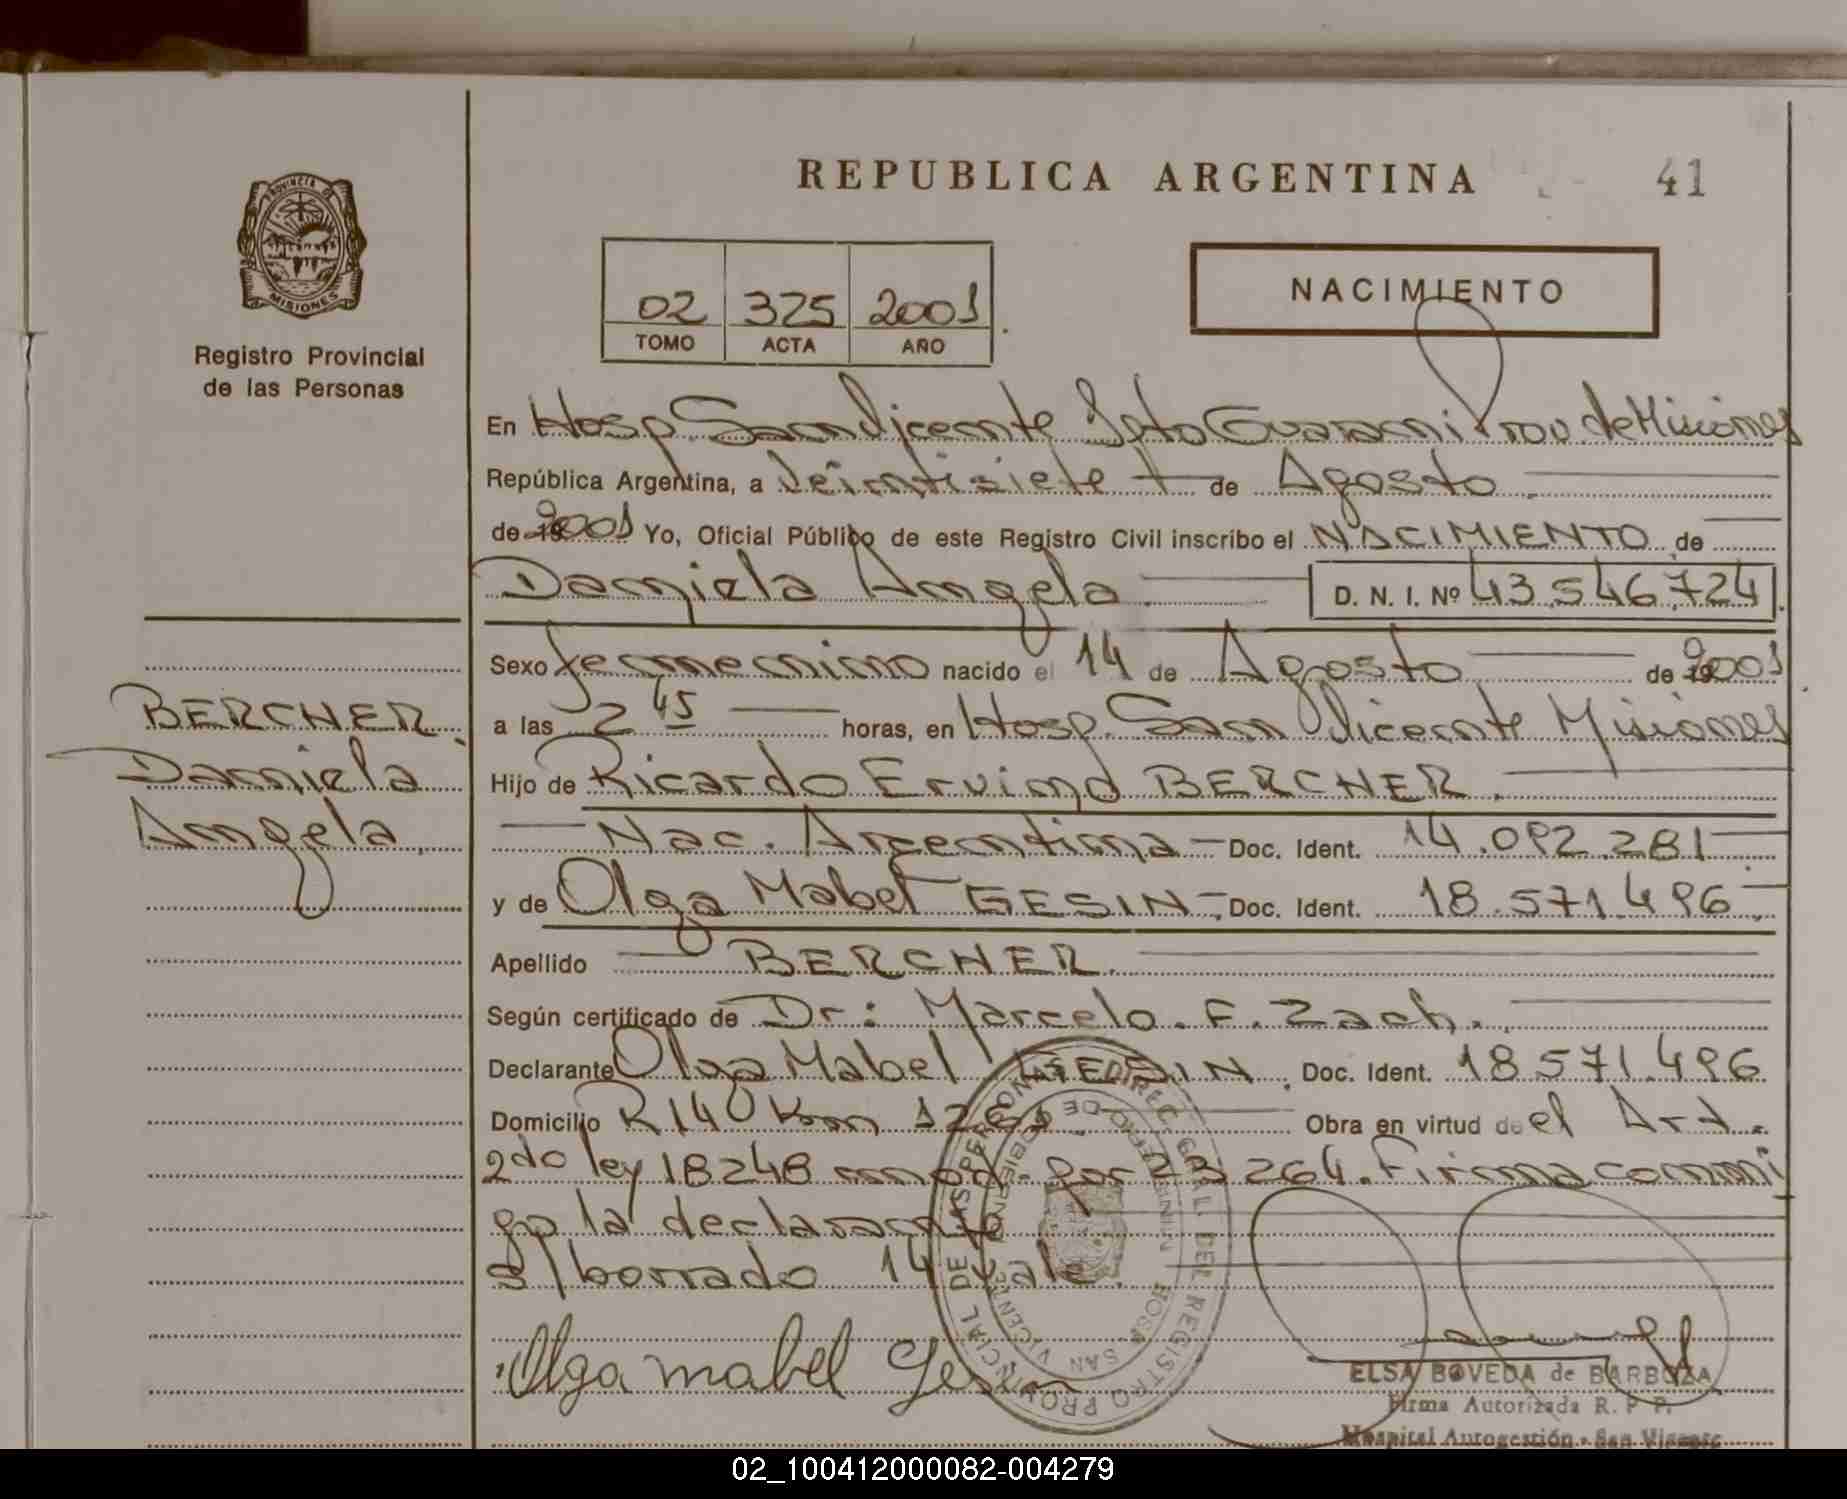 REPUBLICA ARGENTINA
41
PROVINCIA DE
MISIONES
Registro Provincial
de las Personas
02 325 2001
TOMO ACTA AÑO
NACIMIENTO
En Hosp San Vicente Dpto Guarani Prov de Misiones
República Argentina, a Veintisiete de Agosto
de 2001 Yo, Oficial Público de este Registro Civil inscribo el NACIMIENTO de
Daniela Angela D. N. I. Nº 43.546.724
Sexo femenino nacido el 14 de Agosto de 2001
a las 2 45 horas, en Hosp. San Vicente Misiones
Hijo de Ricardo Ervind BERCHER.
Nac. Argentina - Doc. Ident. 14.092.281
y de Olga Mabel GESIN - Doc. Ident. 18.571.496
Apellido BERCHER.
Según certificado de Dr: Marcelo. F. Zach.
Declarante Olga Mabel GESIN. Doc. Ident. 18.571.496
Domicilio R 14 0 Km Obra en virtud de el Art.
2do ley 18248 mod. por 23264. Firma conmi
go la declarante
s/borrado 14 vale.
BERCHER.
Daniela
Angela.
Olga mabel Gesin
DIREC. GRAL. DEL REGISTRO PROVINCIAL DE LAS PERSONAS
HOSP. SAN VICENTE
ELSA BOVEDA de BARBOZA
Firma Autorizada R. P. P.
Hospital Autogestión - San Vicente
02_100412000082-004279